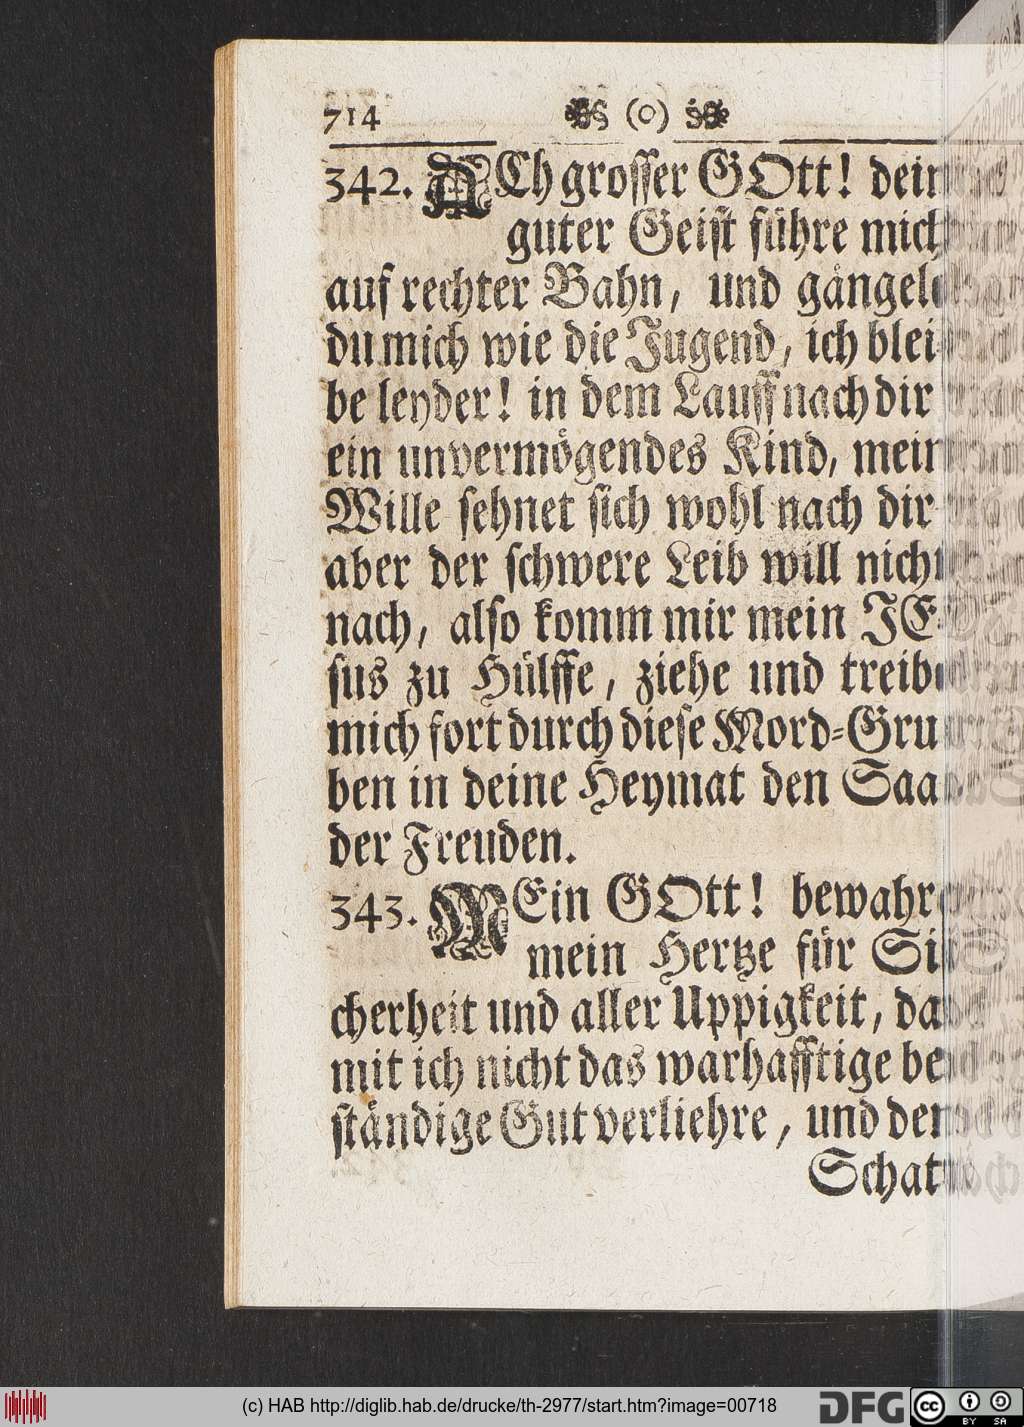 714 (o)
342. ACh grosser GOtt! dein
guter Geist führe mich
auf rechter Bahn, und gängele
du mich wie die Jugend, ich blei-
be leyder! in dem Lauff nach dir
ein unvermögendes Kind, mein
Wille sehnet sich wohl nach dir
aber der schwere Leib will nicht
nach, also komm mir mein JE-
sus zu Hülffe, ziehe und treibe
mich fort durch diese Mord-Gru-
ben in deine Heymat den Saal
der Freuden.
343. MEin GOtt! bewahre
mein Hertze für Si-
cherheit und aller Uppigkeit, da-
mit ich nicht das warhafftige be-
ständige Gut verliehre, und den
Schat-
(c) HAB http://diglib.hab.de/drucke/th-2977/start.htm?image=00718
DFG
cc BY SA